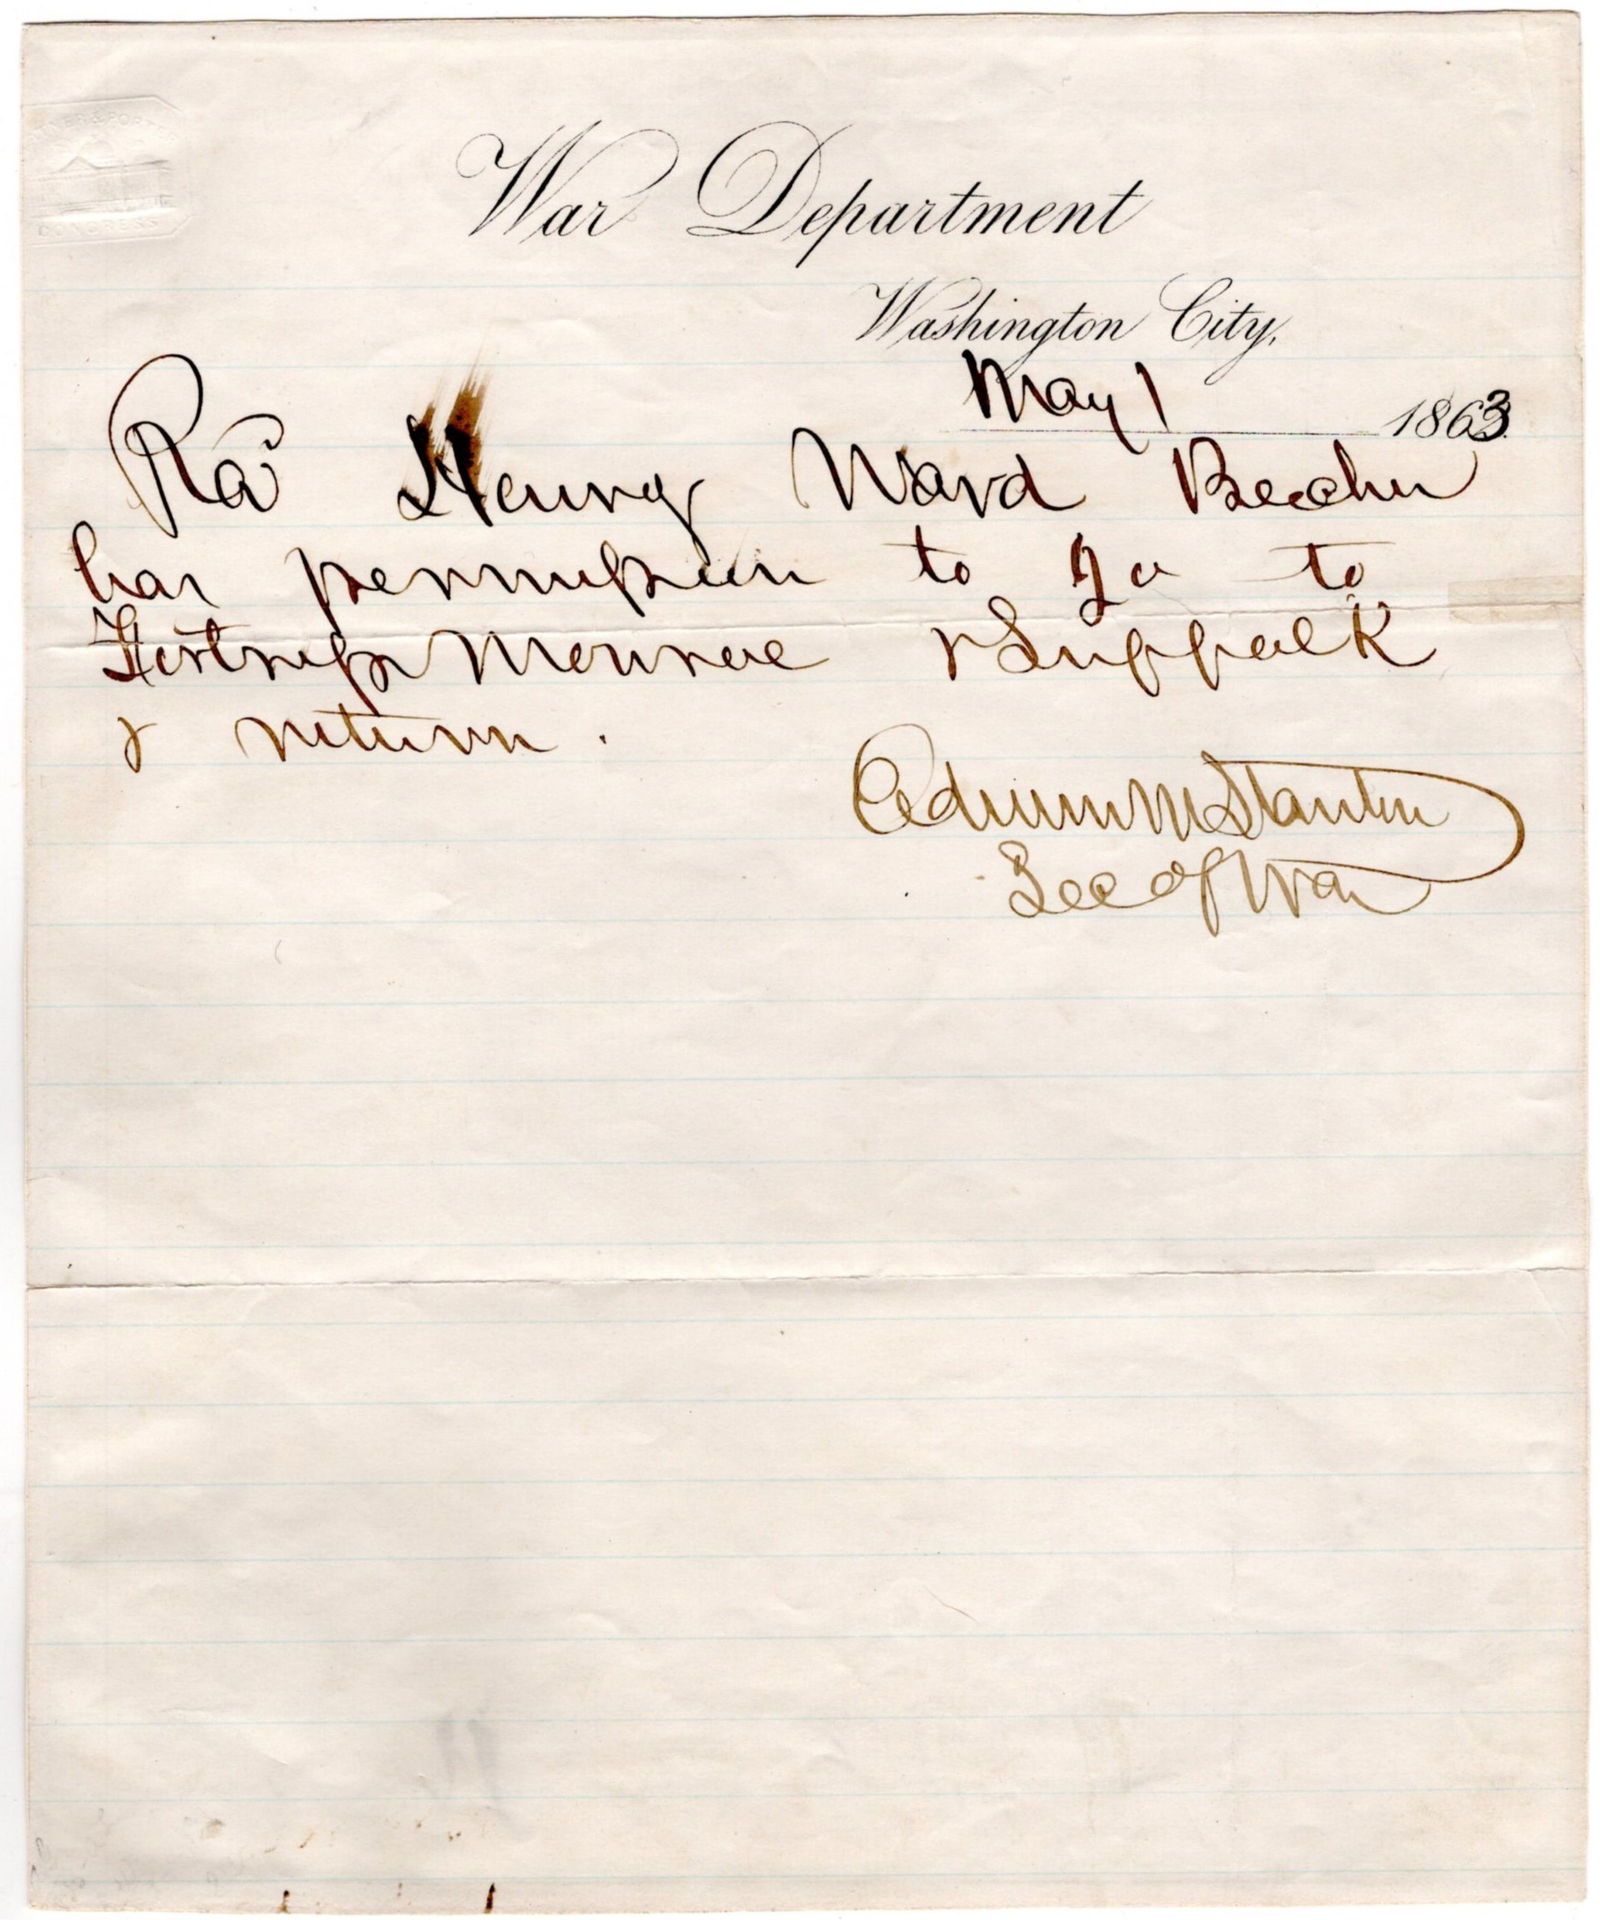 War Department
Washington City,
May 1 1863
Rev Henry Ward Beecher
has permission to go to
Fortress Monroe & Suffolk
& return.
Edwin M Stanton
Sec of War